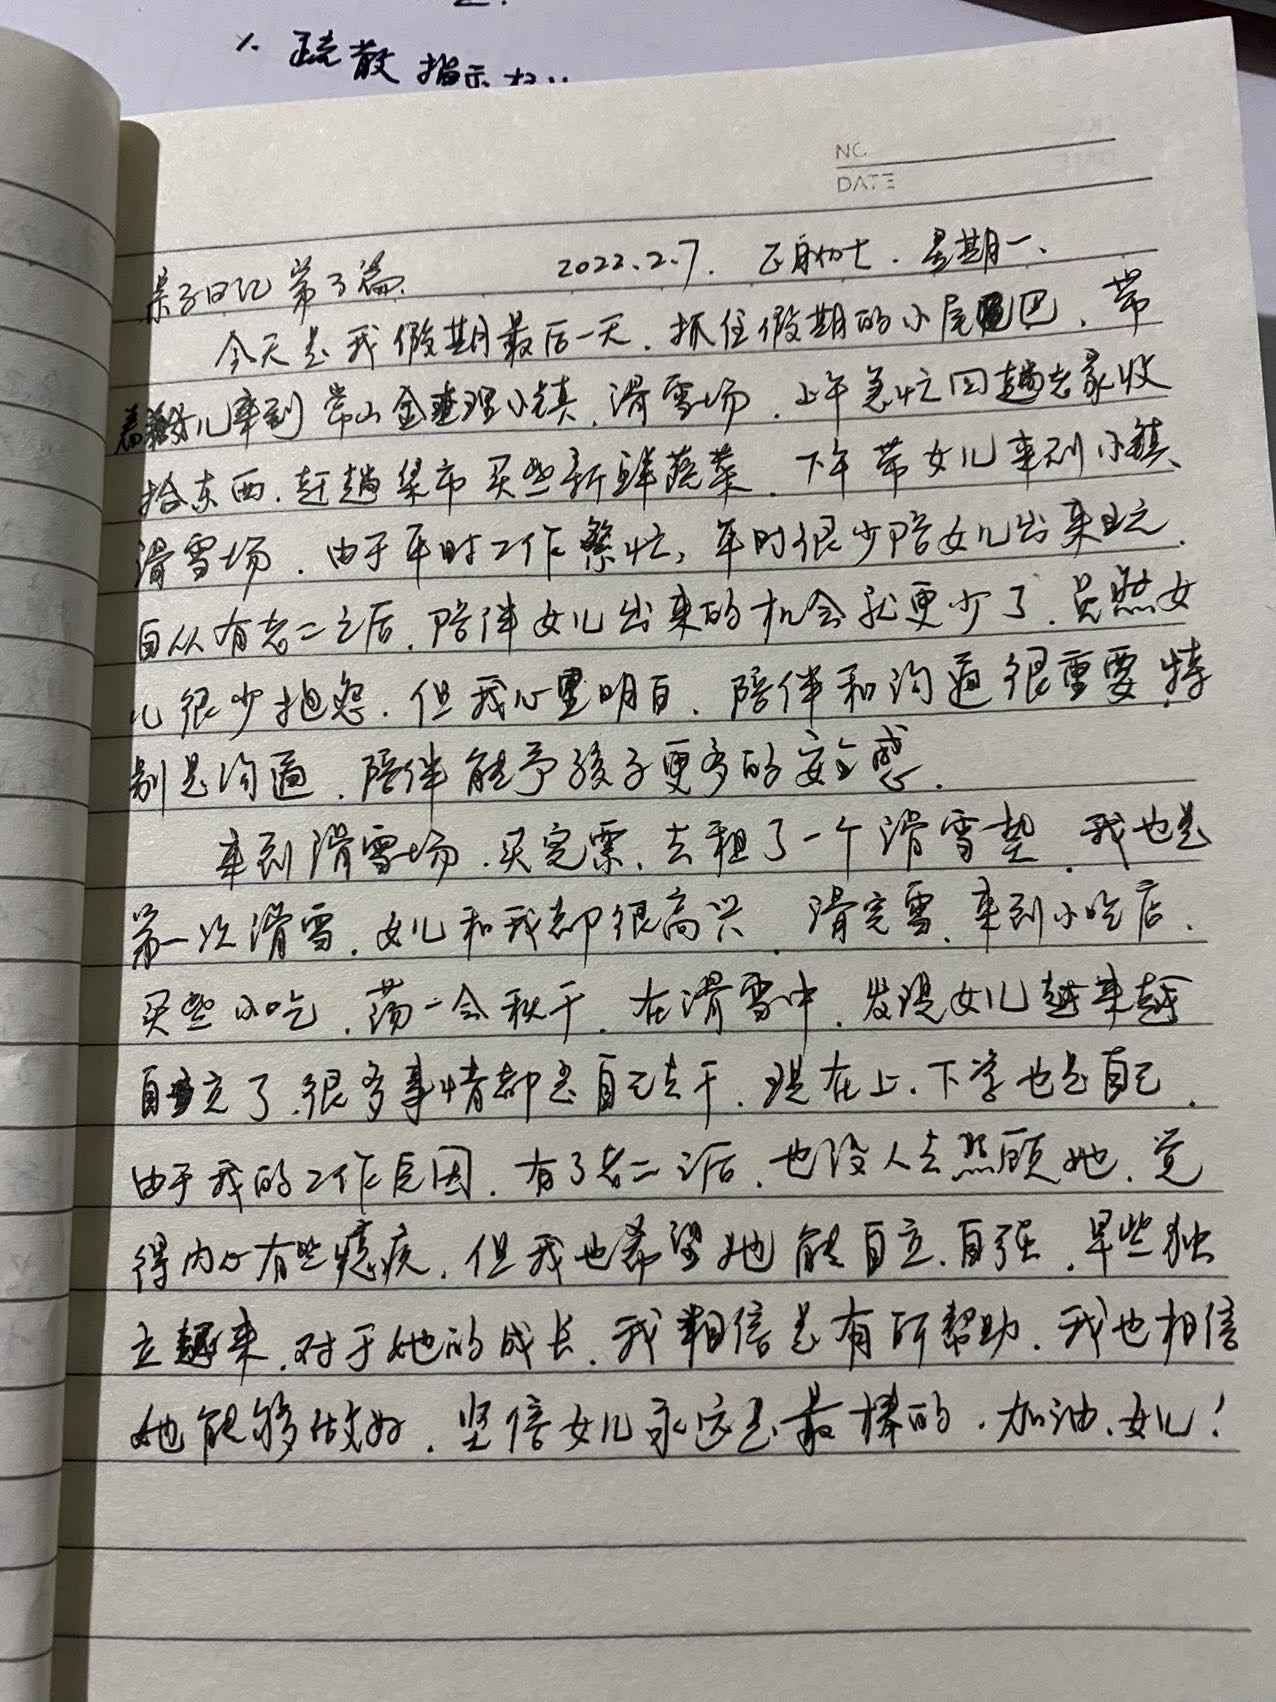 疏散指示
NO.
DATE
亲子日记第3篇. 2022.2.7. 正月初七. 星期一.
今天是我假期最后一天.抓住假期的小尾巴,带
着女儿来到常山金查理小镇,滑雪场.上午急忙回趟老家收
拾东西.赶趟集市买些新鲜蔬菜.下午带女儿来到小镇
滑雪场.由于平时工作繁忙,平时很少陪女儿出来玩.
自从有老二之后,陪伴女儿出来的机会就更少了.虽然女
儿很少抱怨.但我心里明白.陪伴和沟通很重要,特
别是沟通.陪伴能予孩子更多的安全感.
来到滑雪场.买完票、去租了一个滑雪垫.我也是
第一次滑雪.女儿和我都很高兴.滑完雪、来到小吃店.
买些小吃.荡一会秋千.在滑雪中.发现女儿越来越
自立了.很多事情都是自己去干.现在上、下学也是自己.
由于我的工作原因.有了老二之后.也没人去照顾她.觉
得内心有些愧疚.但我也希望她能自立.自强.早些独
立起来.对于她的成长.我相信是有所帮助.我也相信
她能够做好.坚信女儿永远是最棒的.加油.女儿!